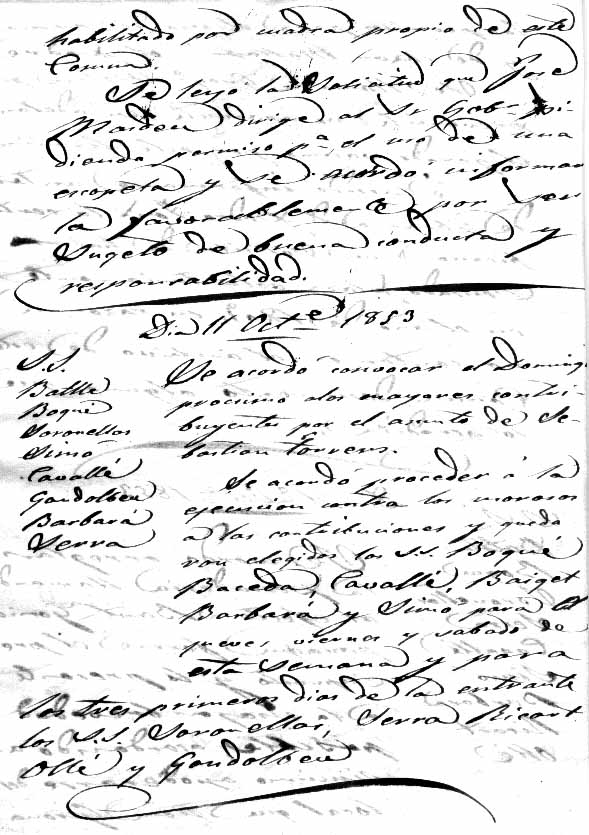 habilitado por madra propio de este
Comun.
Se leyó la Solicitud que José
Masdeu dirige al Sr Gobor pi-
diendo permiso pa el uso de una
escopeta y se acordó informar
la favorablemente por ser
Sugeto de buena conducta y
responsabilidad.
Dia 11 Octe 1853
S.S.
Batlle
Boqué
Soronellas
Simó
Cavallé
Gondolbeu
Barbará
Serra
Se acordó convocar el Domingo
procsimo alos mayores contri-
buyentes por el asunto de Se-
bastian Torrens.
Se acordó proceder á la
ejecucion contra los morosos
a las contribuciones y queda
ron elegidos los S.S. Boqué
Baceda, Cavallé, Baiget
Barbará y Simó para el
jueves, viernes y sabado de
esta Semana y para
los tres primeros dias de la entrante
los S.S. Soronellas, Serra Ricart
Ollé y Gondolbeu